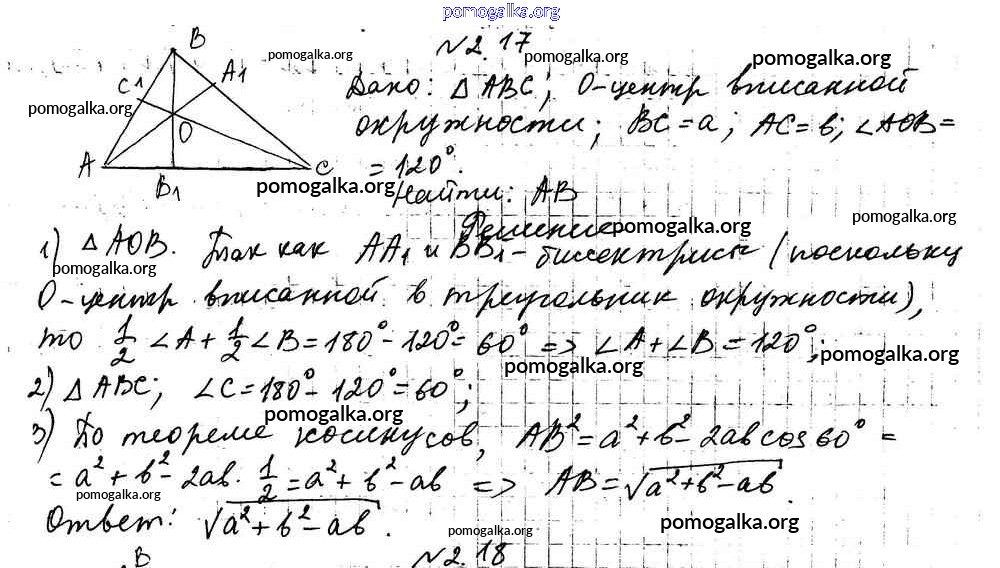 pomogalka.org
B
№2.17
pomogalka.org
pomogalka.org
pomogalka.org
C1
A1
Дано: △ABC; O-центр вписанной
pomogalka.org
pomogalka.org
O
окружности; BC=a; AC=b; ∠AOB=
A
C
=120°.
B1
pomogalka.org
Найти: AB
pomogalka.org
Решение
pomogalka.org
1) △AOB. Так как AA1 и BB1-биссектрисы (поскольку
pomogalka.org
O-центр вписанной в треугольник окружности),
pomogalka.org
то 1/2 ∠A + 1/2 ∠B = 180° - 120° = 60° => ∠A+∠B = 120°;
pomogalka.org
pomogalka.org
2) △ABC; ∠C=180°-120°=60°;
pomogalka.org
3) По теореме косинусов, AB²=a²+b²-2ab cos60°=
=a²+b²-2ab·1/2=a²+b²-ab => AB=√a²+b²-ab.
pomogalka.org
Ответ: √a²+b²-ab.
pomogalka.org
pomogalka.org
B
№2.18